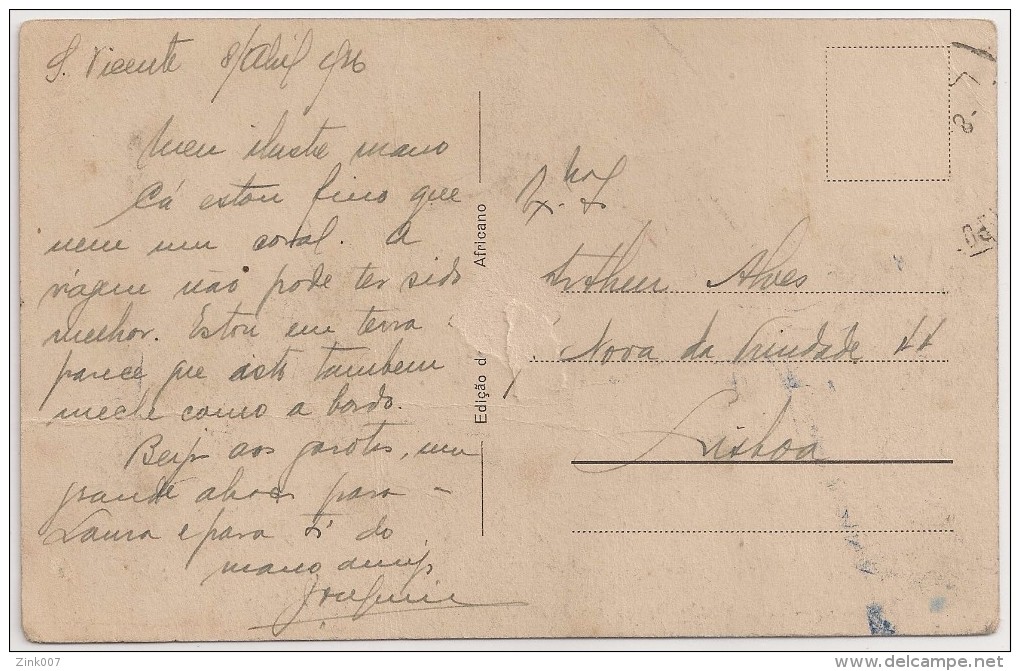 S. Vicente 8/Abril 926
Meu ilustre mano
Cá estou fino que
nem um coral. A
viagem não pode ter sido
melhor. Estou em terra
parece que isto tambem
meche como a bordo.
Beijos aos garotos, um
grande abraço para
Laura e para ti do
mano amigo
Joaquim
Edição do
Africano
Arthur Alves
Nova da Trindade 44
Lisboa
Zink007
delcampe.net